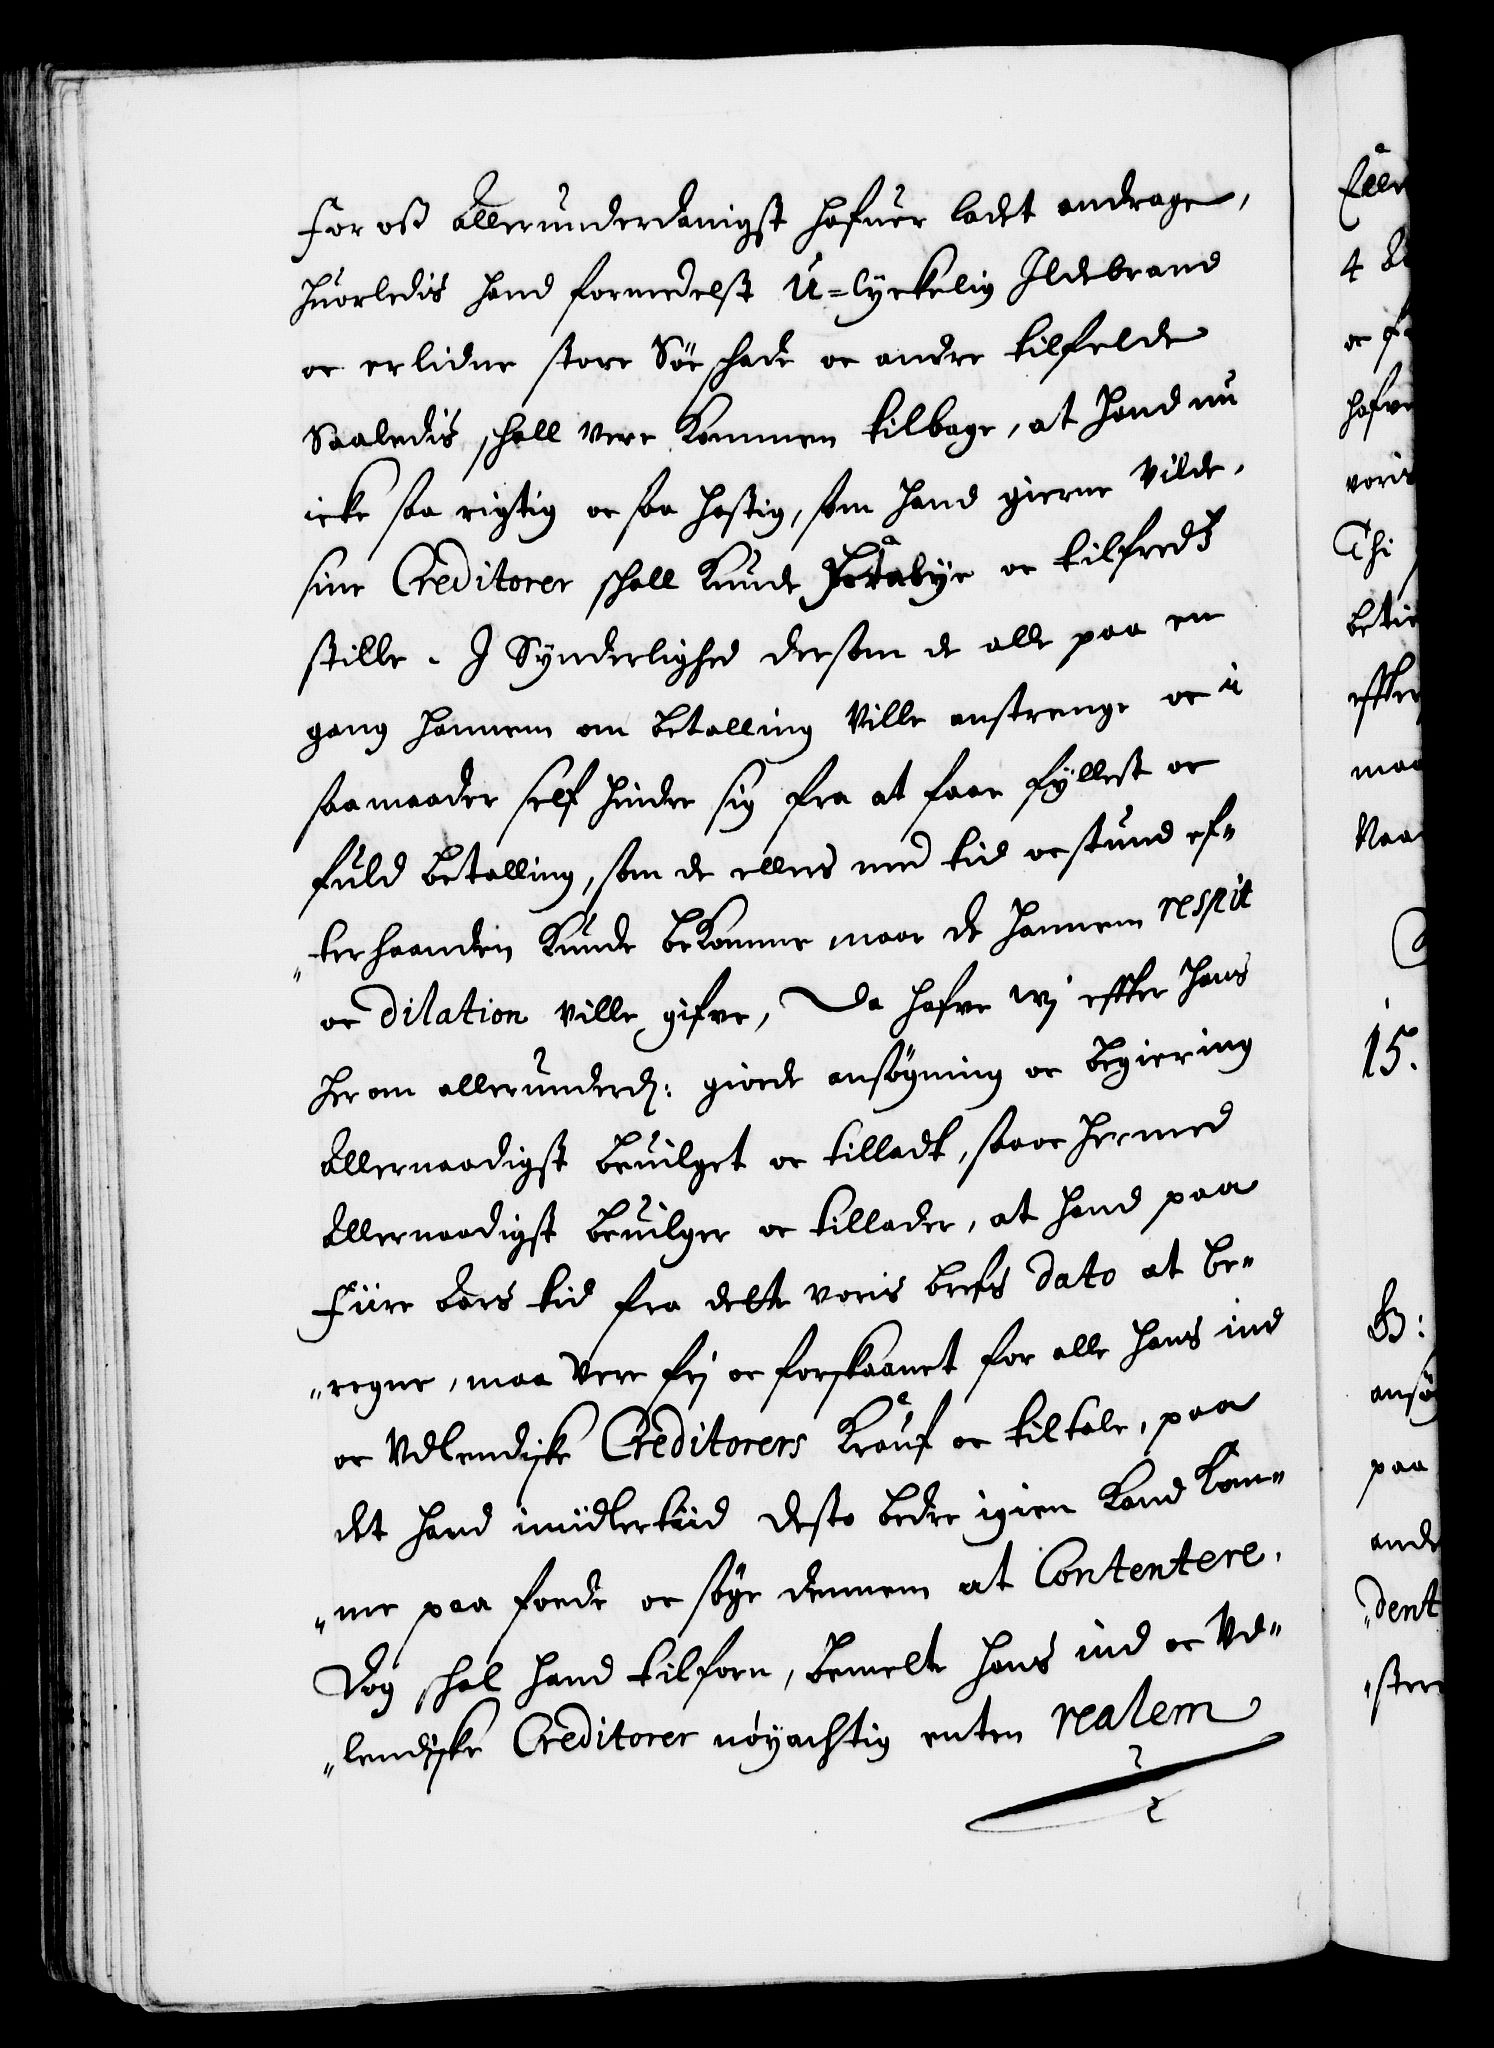 For oß Allerunderdanigst hafuer ladet andrage,
huorledis hand formedelst U=lyckelig Ildebrand
oc erlidne store Söe schade oc andre tilfelde
Saaledis schall vere kommen tilbage, at hand nu
icke saa rigtig oc saa hastig, som hand gierne vilde,
sine Creditorer schall kunde betahle oc tilfredß
stille. I Synderlighed dersom de alle paa en
gang hannem om betalling ville anstrenge oc i
saa maader self hindre sig fra at faae fyllest oc
fuld betalling, som de ellers med tid oc stund ef"
"terhaanden kunde bekomme naar de hannem respit
oc dilation ville gifve, Da hafve wj effter hans
her om allerunderd: giorde ansøgning oc begiering
Allernaadigst beuilget oc tilladt, saa oc hermed
Allernaadigst beuilger oc tillader, at hand paa
Fiire Aars tid fra dette voris brefs dato at be"
"regne, maa vere frj oc forskaanet for alle hans ind
oc Vdlendiske Creditorers Krauf oc tiltale, paa
det hand imidlertiid desto bedre igien kand kom"
"me paa fode oc søge dennem at Contentere.
Dog schal hand tilforn, bemelte hans ind oc Vd"
"lendiske Creditorer nøyachtig enten realem
Aller
4
oc
hafve
voris
Thi
effter
maa
Naa
15.
B:
ansøg
paa
ande
"dent